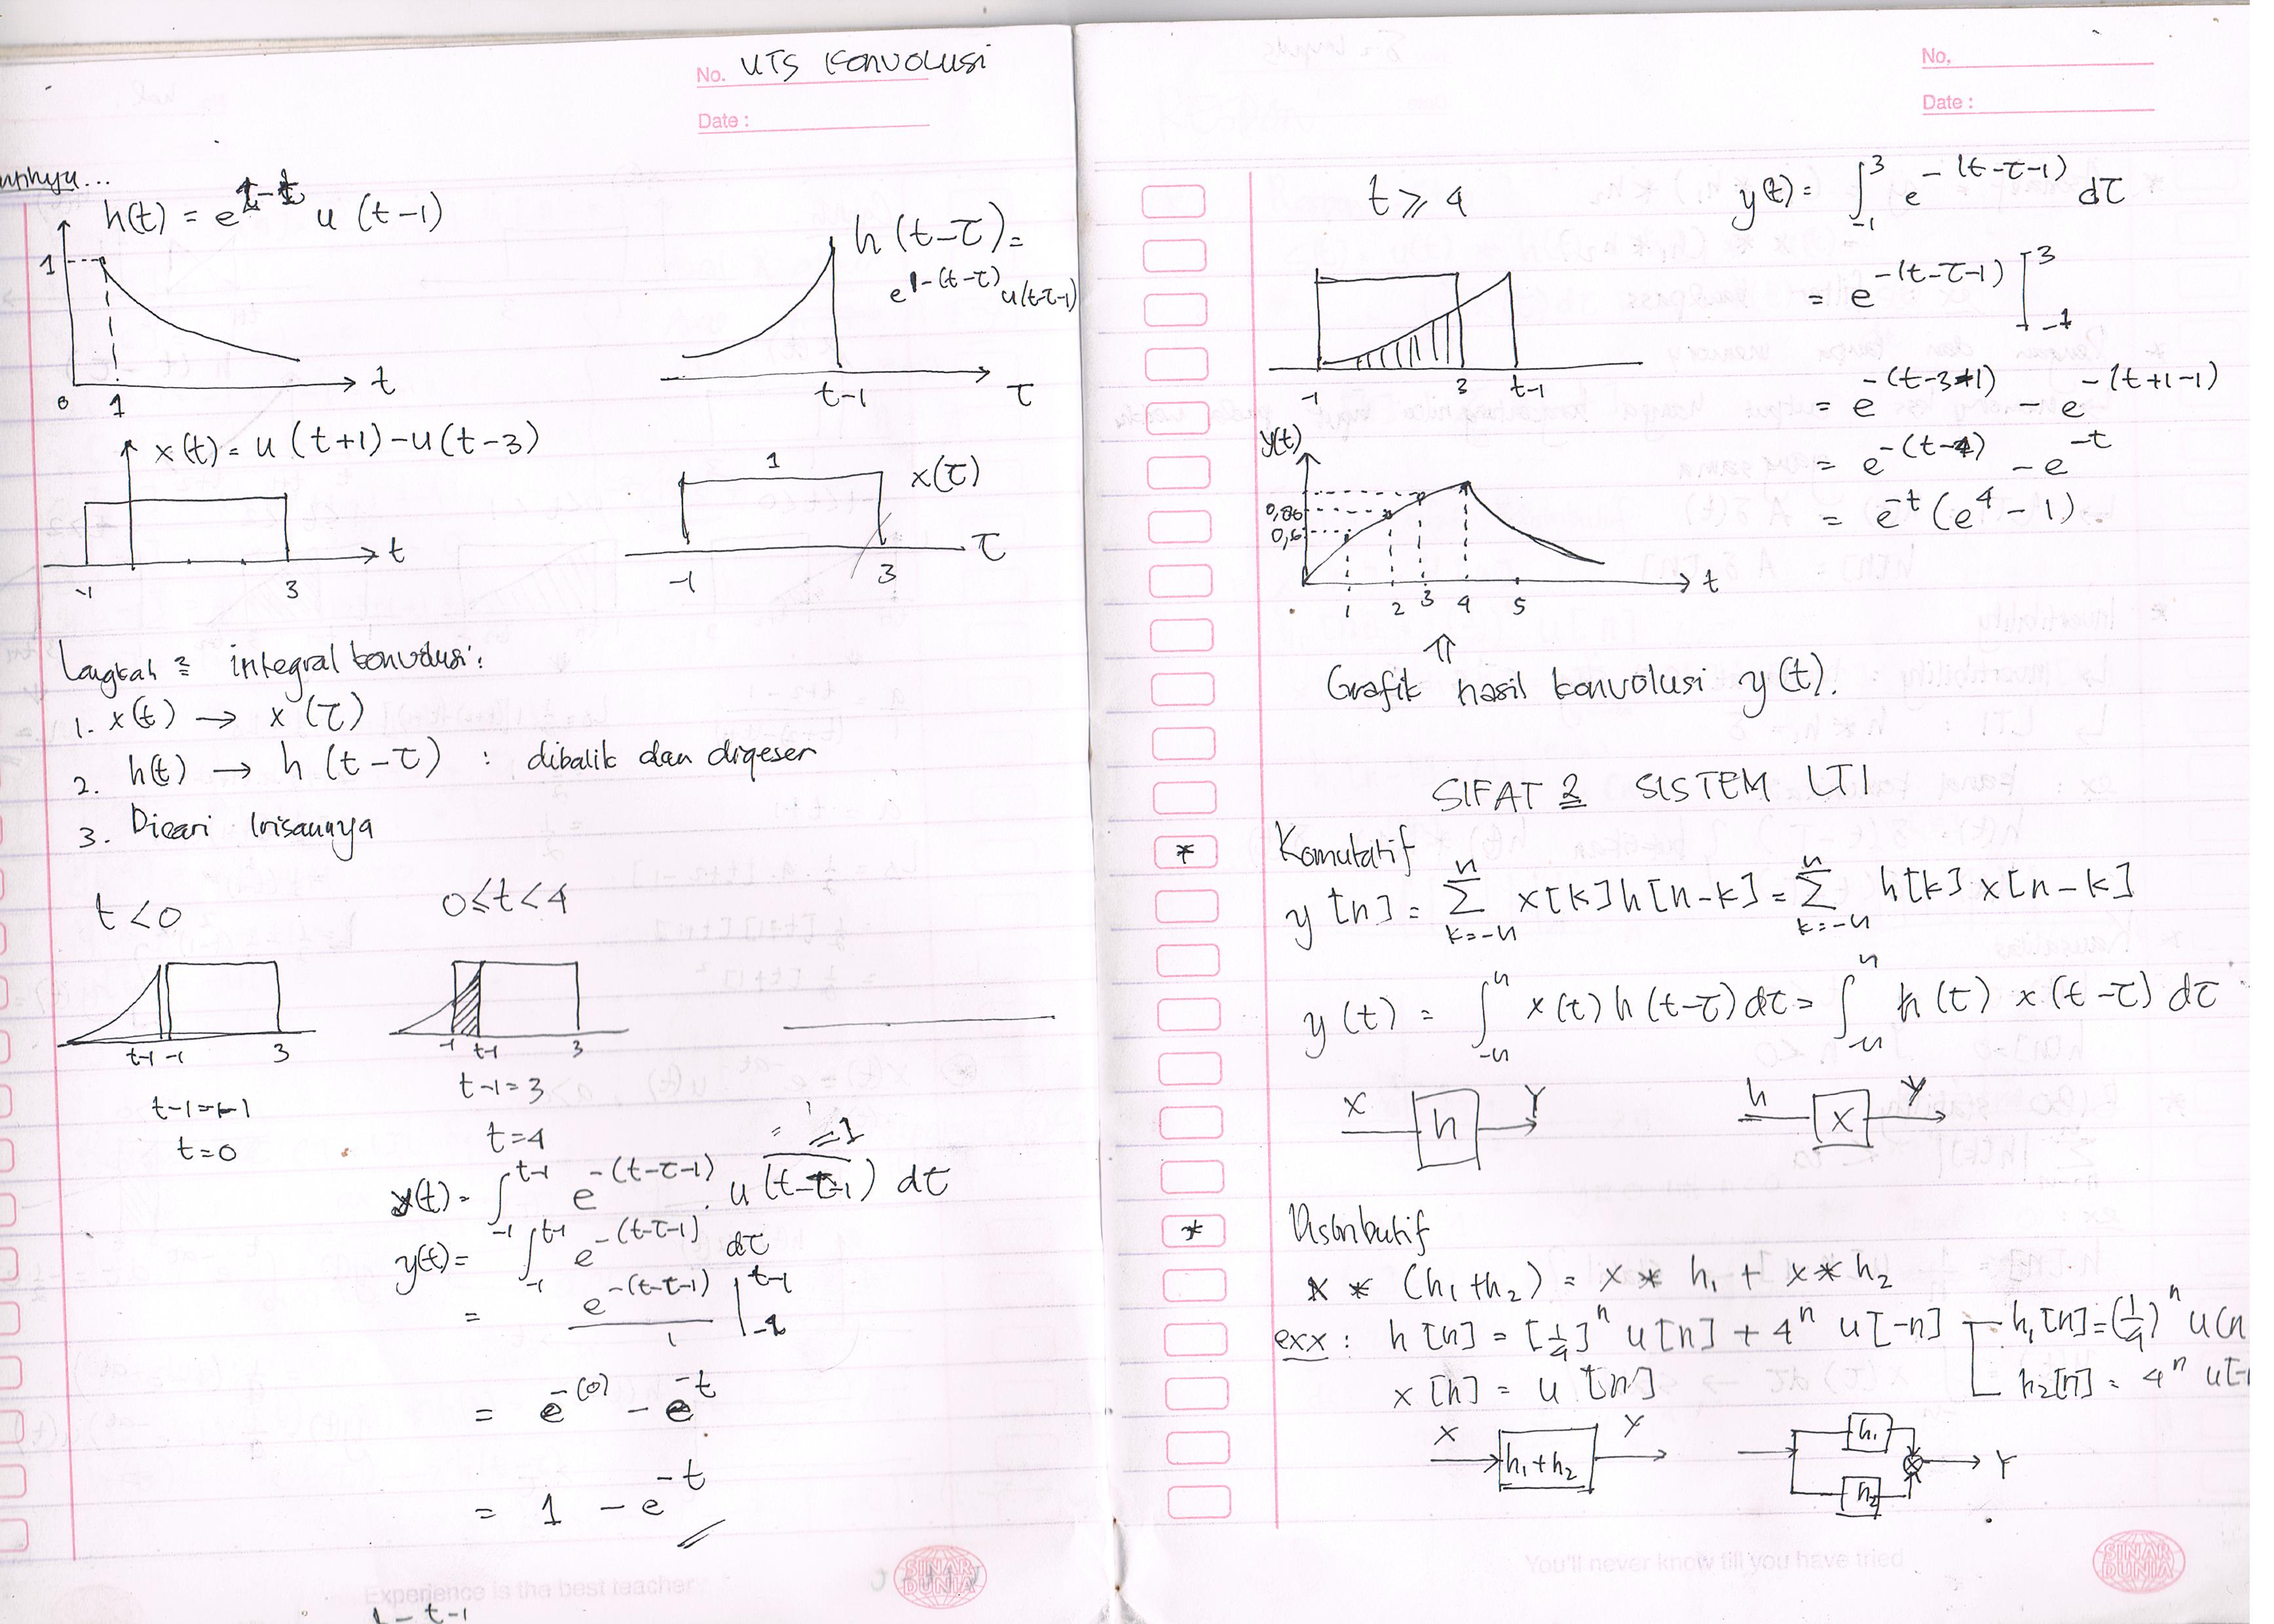 No. UTS KONVOLUSI
Date :
h(t) = e^{1-t} u (t-1)
1
0 1 t
h (t-τ) =
e^{1-(t-τ)} u(t-τ-1)
t-1 τ
x(t) = u (t+1) - u(t-3)
-1 3 t
1 x(τ)
-1 3 τ
Langkah 2 integral konvolusi:
1. x(t) → x (τ)
2. h(t) → h (t-τ) : dibalik dan digeser
3. Dicari irisannya
t < 0 0 ≤ t < 4
t-1 -1 3
-1 t-1 3
t-1 = -1
t=0
t-1 = 3
t=4
= 1
y(t) = ∫_{-1}^{t-1} e^{-(t-τ-1)} . u (t-τ-1) dτ
y(t) = ∫_{-1}^{t-1} e^{-(t-τ-1)} dτ
= e^{-(t-τ-1)} / 1 |_{-1}^{t-1}
= e^{-(0)} - e^{-t}
= 1 - e^{-t}
Experience is the best teacher
SINAR DUNIA
No.
Date :
t ≥ 4 y(t) = ∫_{-1}^{3} e^{-(t-τ-1)} dτ
= e^{-(t-τ-1)} ]_{-1}^{3}
-1 3 t-1
= e^{-(t-3-1)} - e^{-(t+1-1)}
= e^{-(t-4)} - e^{-t}
= e^{-t} (e^4 - 1)
y(t)
0,86
0,6
1 2 3 4 5 t
⇑
Grafik hasil konvolusi y(t).
SIFAT 2 SISTEM LTI
* Komutatif
y [n] = Σ_{k=-n}^{n} x[k] h[n-k] = Σ_{k=-n}^{n} h[k] x[n-k]
y (t) = ∫_{-n}^{n} x(t) h (t-τ) dτ = ∫_{-n}^{n} h (t) x (t-τ) dτ
x h Y h x Y
* Distributif
x * (h₁+h₂) = x * h₁ + x * h₂
exx : h [n] = [1/4]^n u[n] + 4^n u[-n] h₁[n] = (1/4)^n u(n
x [n] = u [n] h2[n] = 4^n u[-
X h₁+h₂ Y h₁ h₂ Y
You'll never know till you have tried
SINAR DUNIA